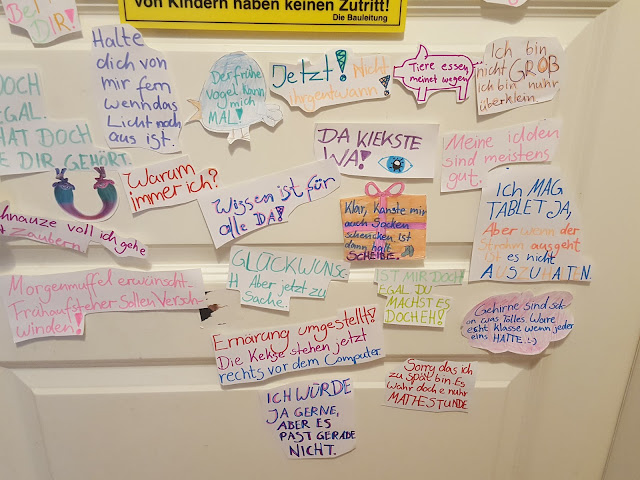 von Kindern haben keinen Zutritt!
Die Bauleitung
Bei
DIR!
Halte
dich von
mir fern
wenn das
Licht noch
aus ist.
Der frühe
Vogel kann
mich
MAL!
Jetzt! Nicht
irgentwann!
Tiere essen
meinet wegen
Ich bin
nicht GROẞ
Ich bin nuhr
überklein.
DOCH
EGAL.
HAT DOCH
DIR GEHÖRT.
DA KIEKSTE
WA!
Meine idden
sind meistens
gut.
Warum
immer ich?
Wissen ist für
alle DA!
Klar, kanste mir
auch Socken
schencken. Ist
dann halt
SCHEIẞE.
ICH MAG
TABLET JA,
Aber wenn der
Strohm ausgeht
Ist es nicht
AUSZUHATN.
Schnauze voll ich gehe
Zaubern
GLÜCKWUNSC
H Aber jetzt zu
Sache.
IST MIR DOCH
EGAL DU
MACHST ES
DOCH EH!
Morgenmuffel erwünscht-
Frühaufsteher sollen Versch-
winden!
Gehirne sind so
on was Tolles. Wäre
echt Klasse wenn jeder
eins HÄTTE. :)
Ernärung umgestellt!
Die Kekse stehen jetzt
rechts vor dem Computer
Sorry das ich
zu spät bin. Es
wahr doch e nuhr
MATHESTUNDE
ICH WÜRDE
JA GERNE,
ABER ES
PAST GERADE
NICHT.